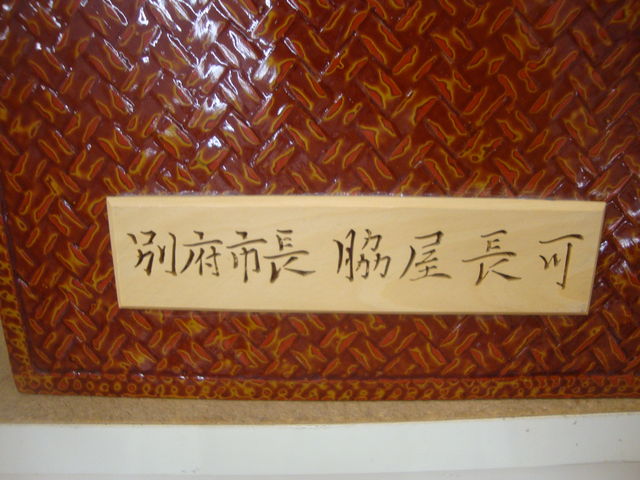 別府市長 脇屋長可